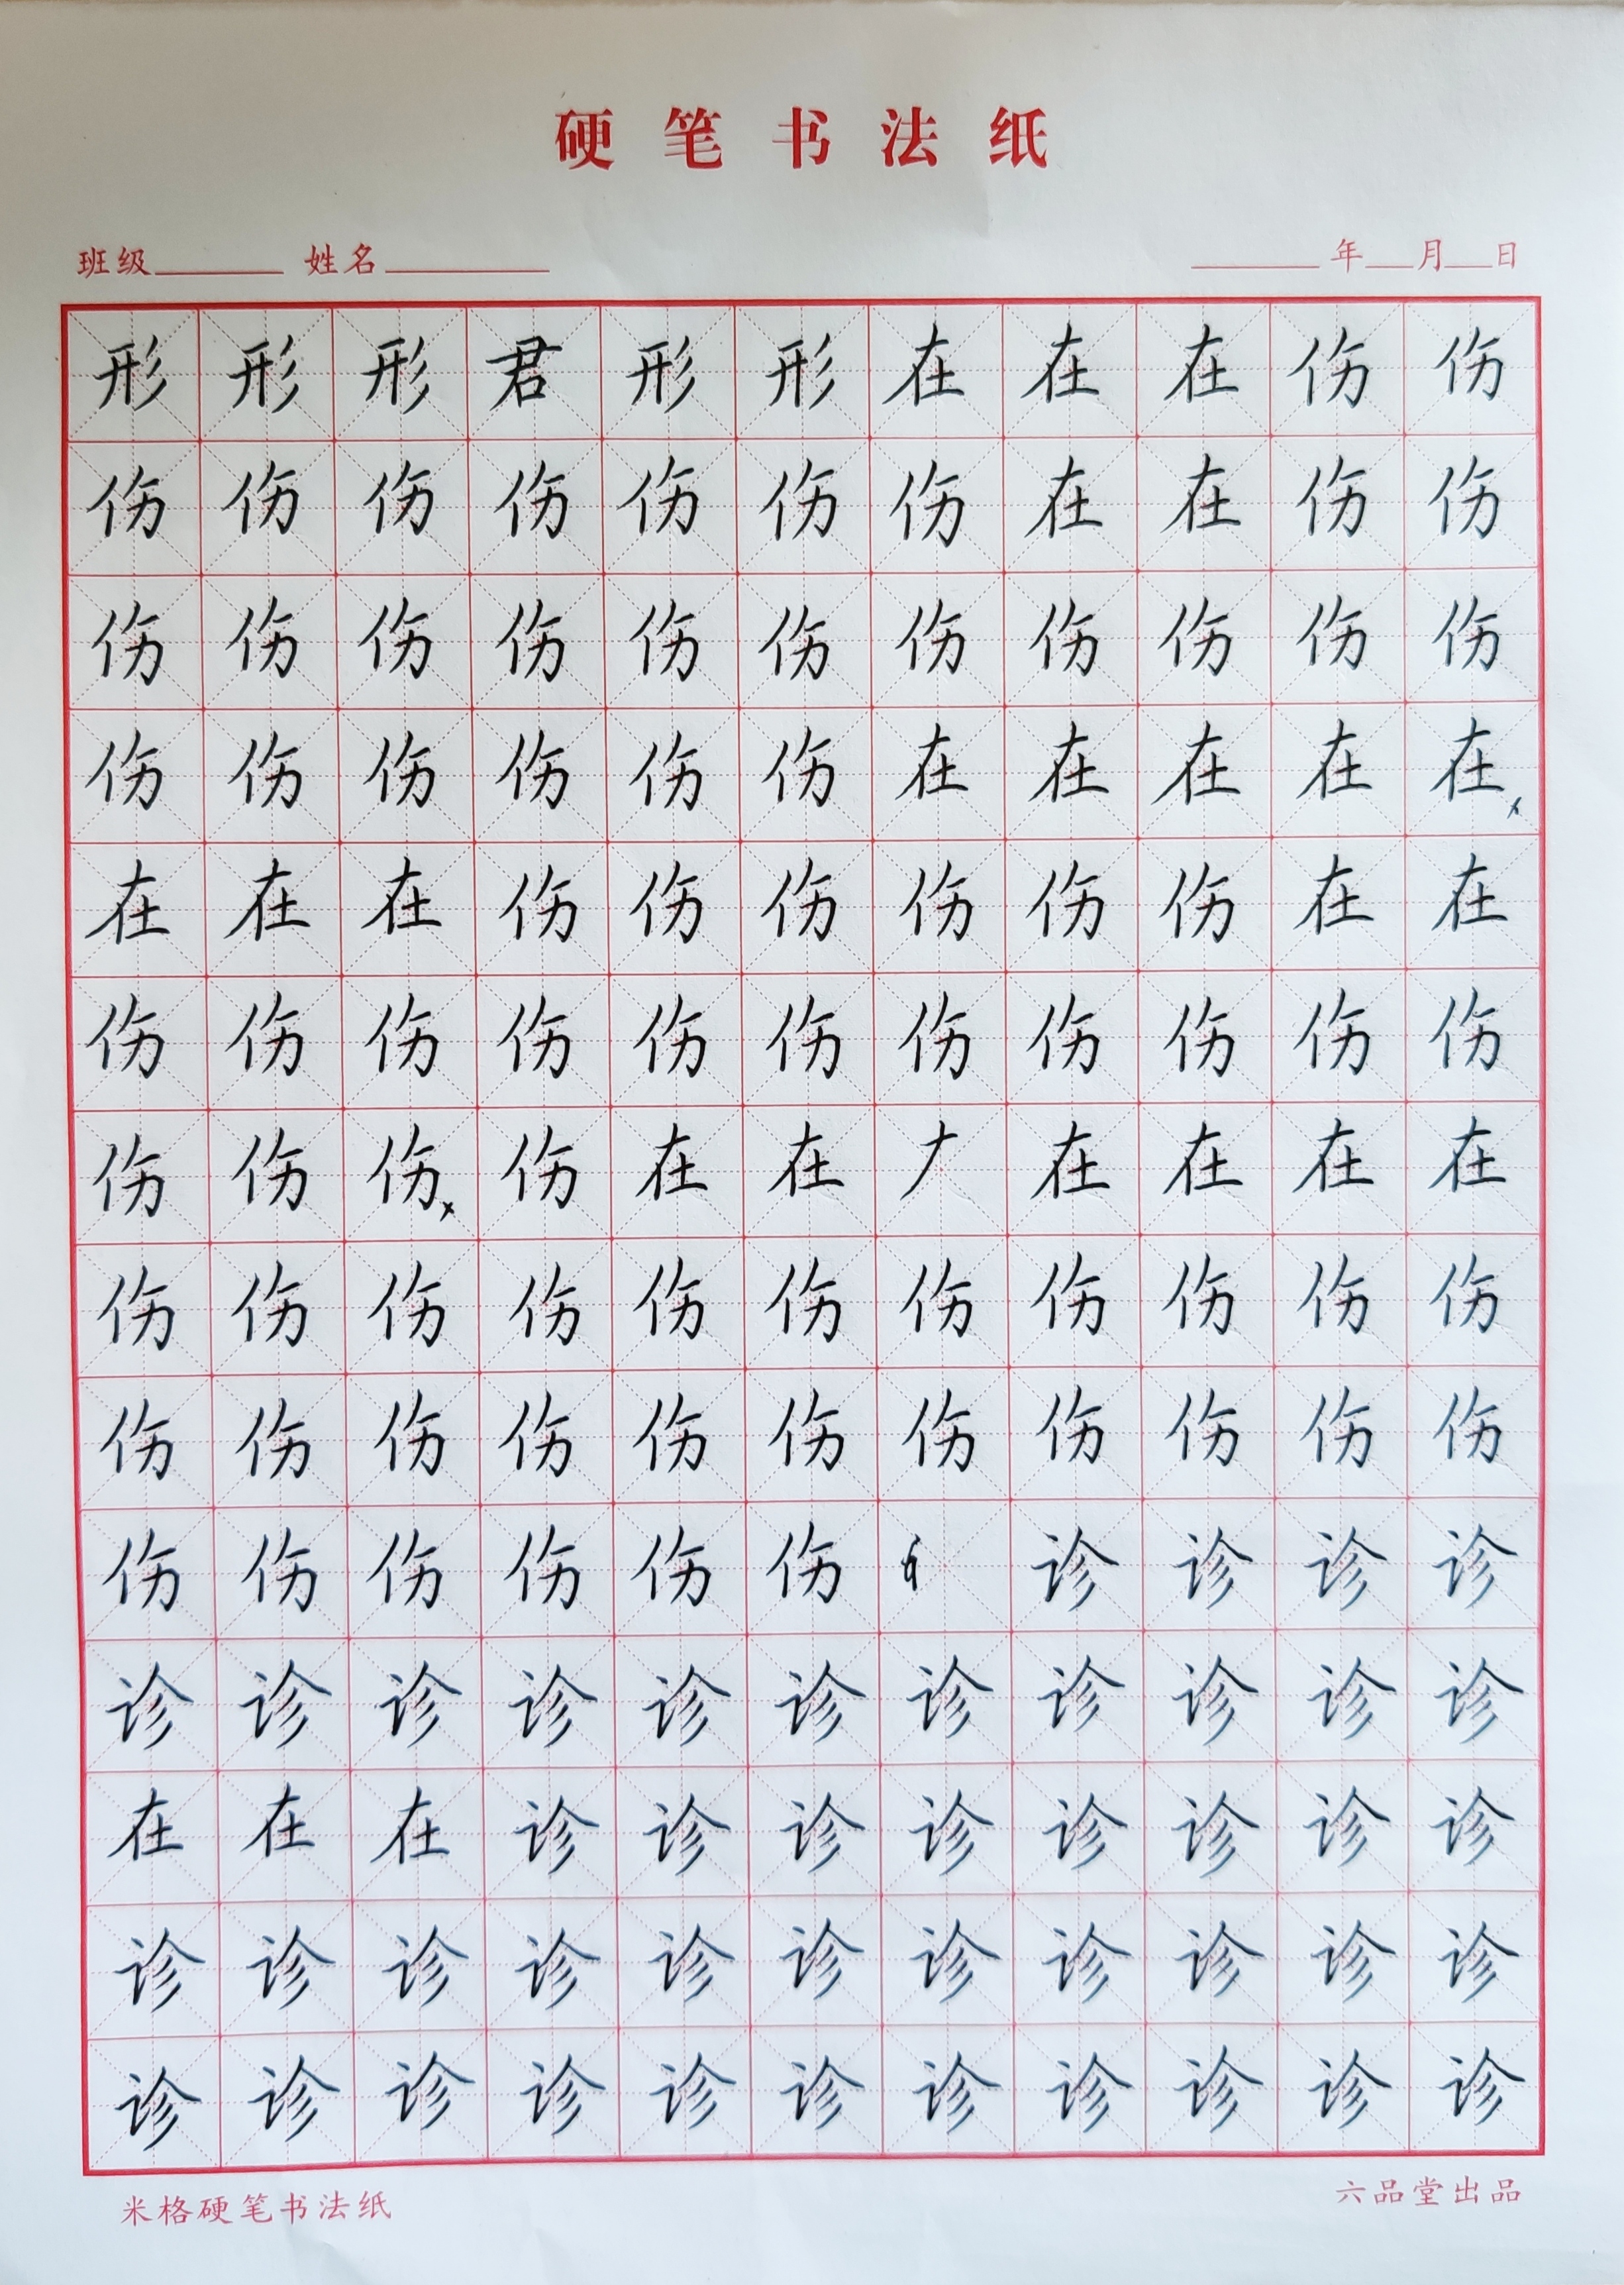 硬笔书法纸
班级 姓名 年 月 日
形形形君形形在在在伤伤
伤伤伤伤伤伤伤在在伤伤
伤伤伤伤伤伤伤伤伤伤伤
伤伤伤伤伤伤在在在在在
在在在伤伤伤伤伤伤在在
伤伤伤伤伤伤伤伤伤伤伤
伤伤伤伤在在𠂇在在在在
伤伤伤伤伤伤伤伤伤伤伤
伤伤伤伤伤伤伤伤伤伤伤
伤伤伤伤伤伤诊诊诊诊
诊诊诊诊诊诊诊诊诊诊诊
在在在诊诊诊诊诊诊诊诊
诊诊诊诊诊诊诊诊诊诊诊
诊诊诊诊诊诊诊诊诊诊诊
米格硬笔书法纸 六品堂出品